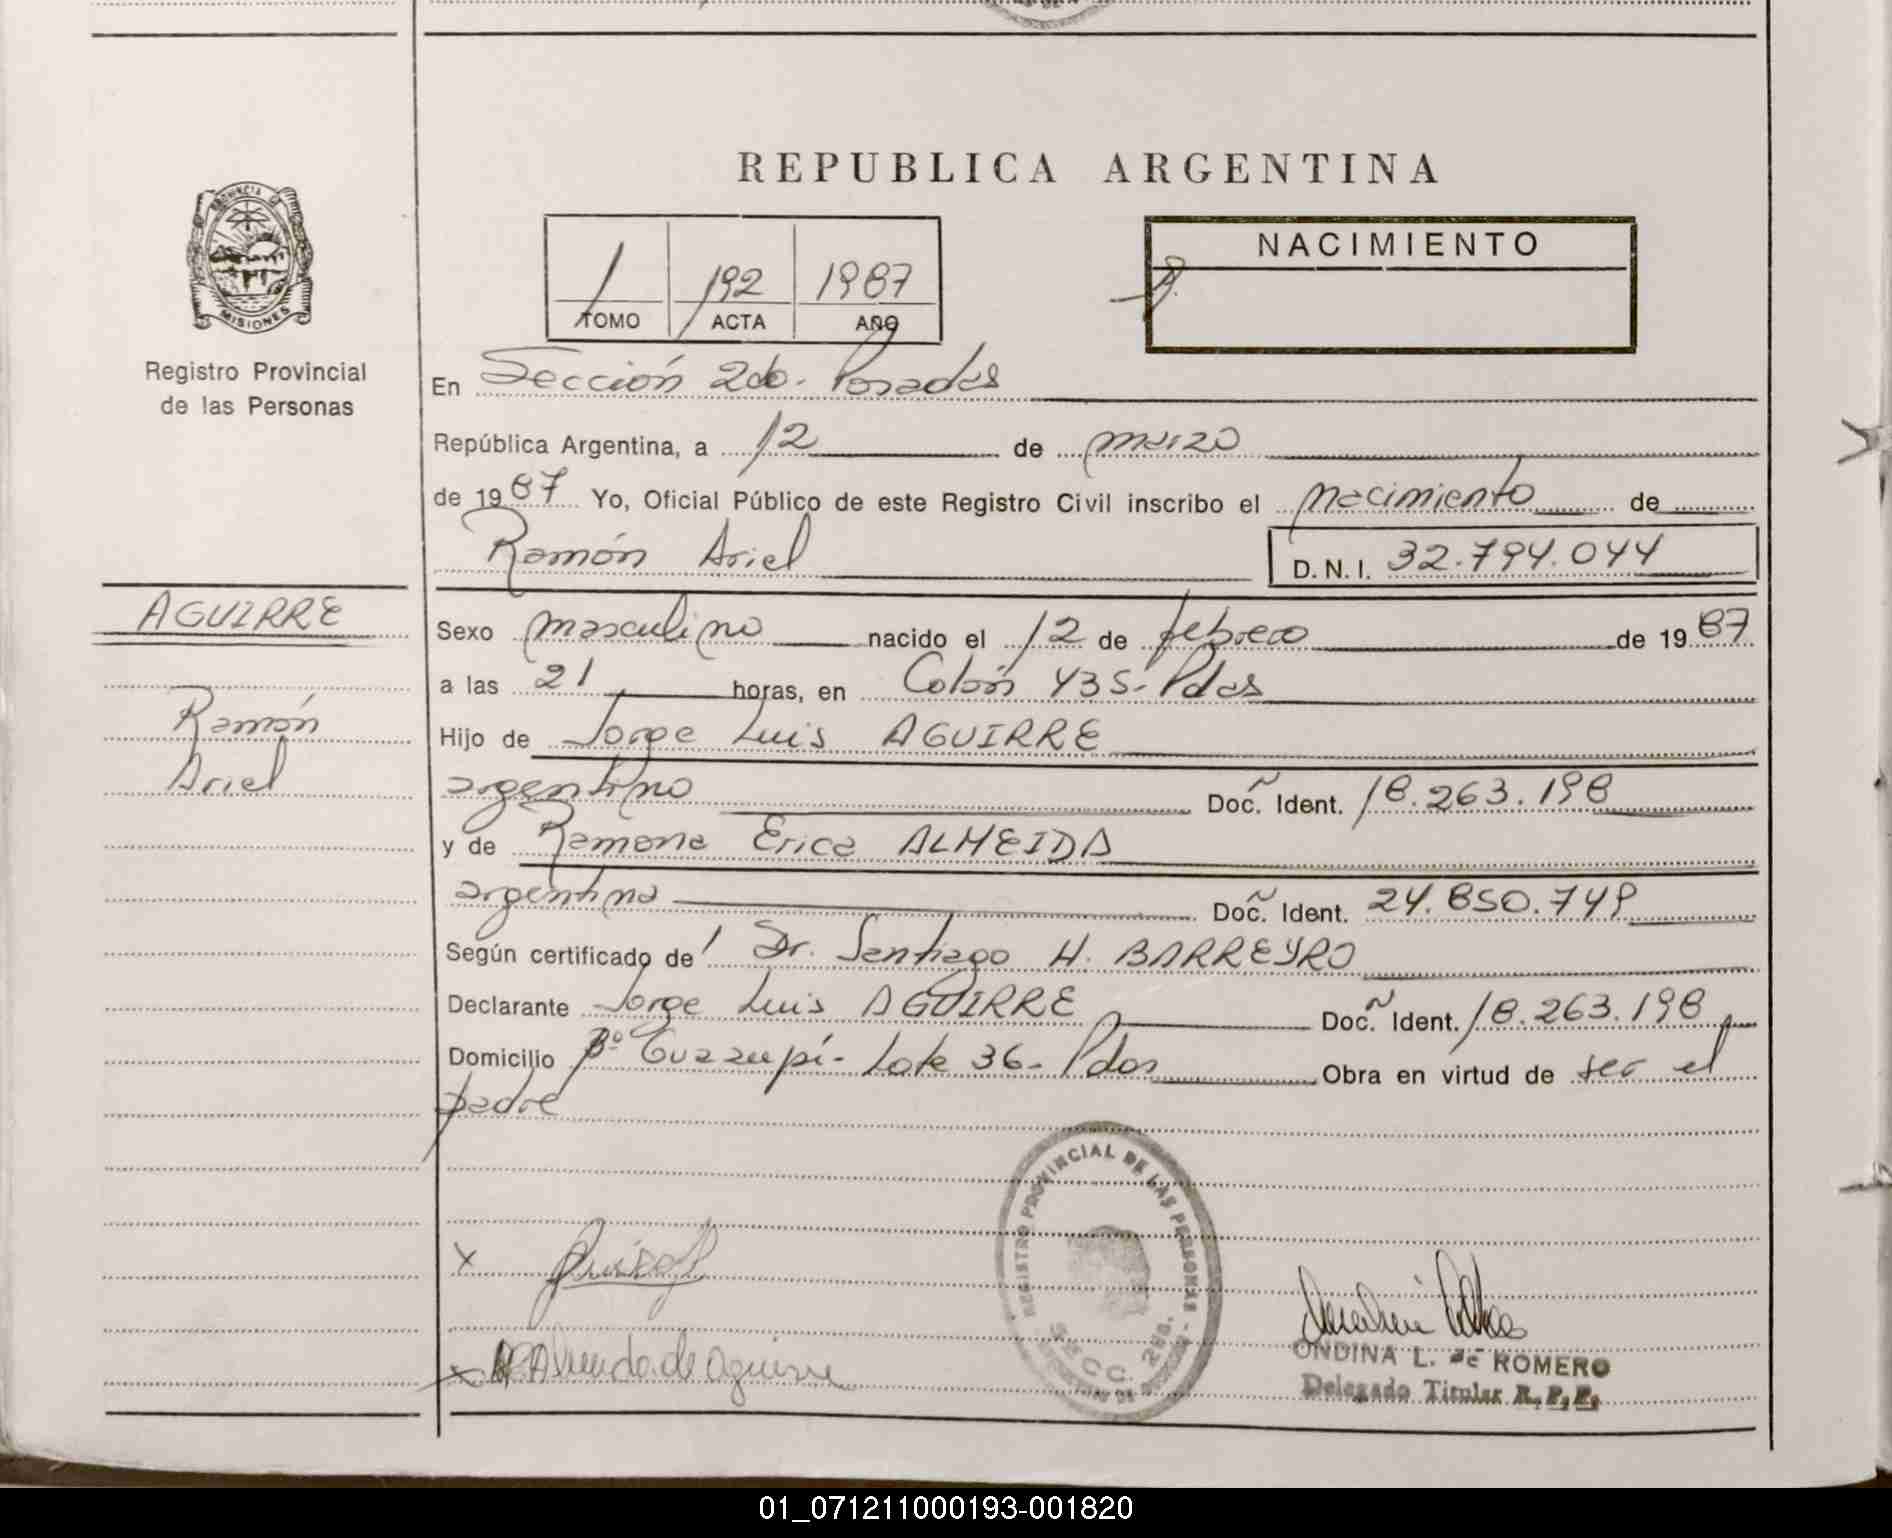 REPUBLICA ARGENTINA
PROVINCIA
MISIONES
Registro Provincial
de las Personas
1 192 1987
TOMO ACTA AÑO
NACIMIENTO
En Sección 2da. Posadas
República Argentina, a 12 de marzo
de 1987 Yo, Oficial Público de este Registro Civil inscribo el nacimiento de
Ramón Ariel D.N.I. 32.794.044
AGUIRRE
Ramón
Ariel
Sexo masculino nacido el 12 de febrero de 1987
a las 21 horas, en Colón 435- Pdas
Hijo de Jorge Luis AGUIRRE
argentino Doc. Ident. 18.263.198
y de Ramona Erica ALMEIDA
argentina Doc. Ident. 24.850.749
Según certificado de Dr. Santiago H. BARREYRO
Declarante Jorge Luis AGUIRRE Doc. Ident. 18.263.198
Domicilio Bº Guazupí- Lote 36- Pdas Obra en virtud de ser el
padre
REGISTRO PROVINCIAL DE LAS PERSONAS
x
x de aguirre
ONDINA L. de ROMERO
Delegado Titular R.P.P.
01_071211000193-001820